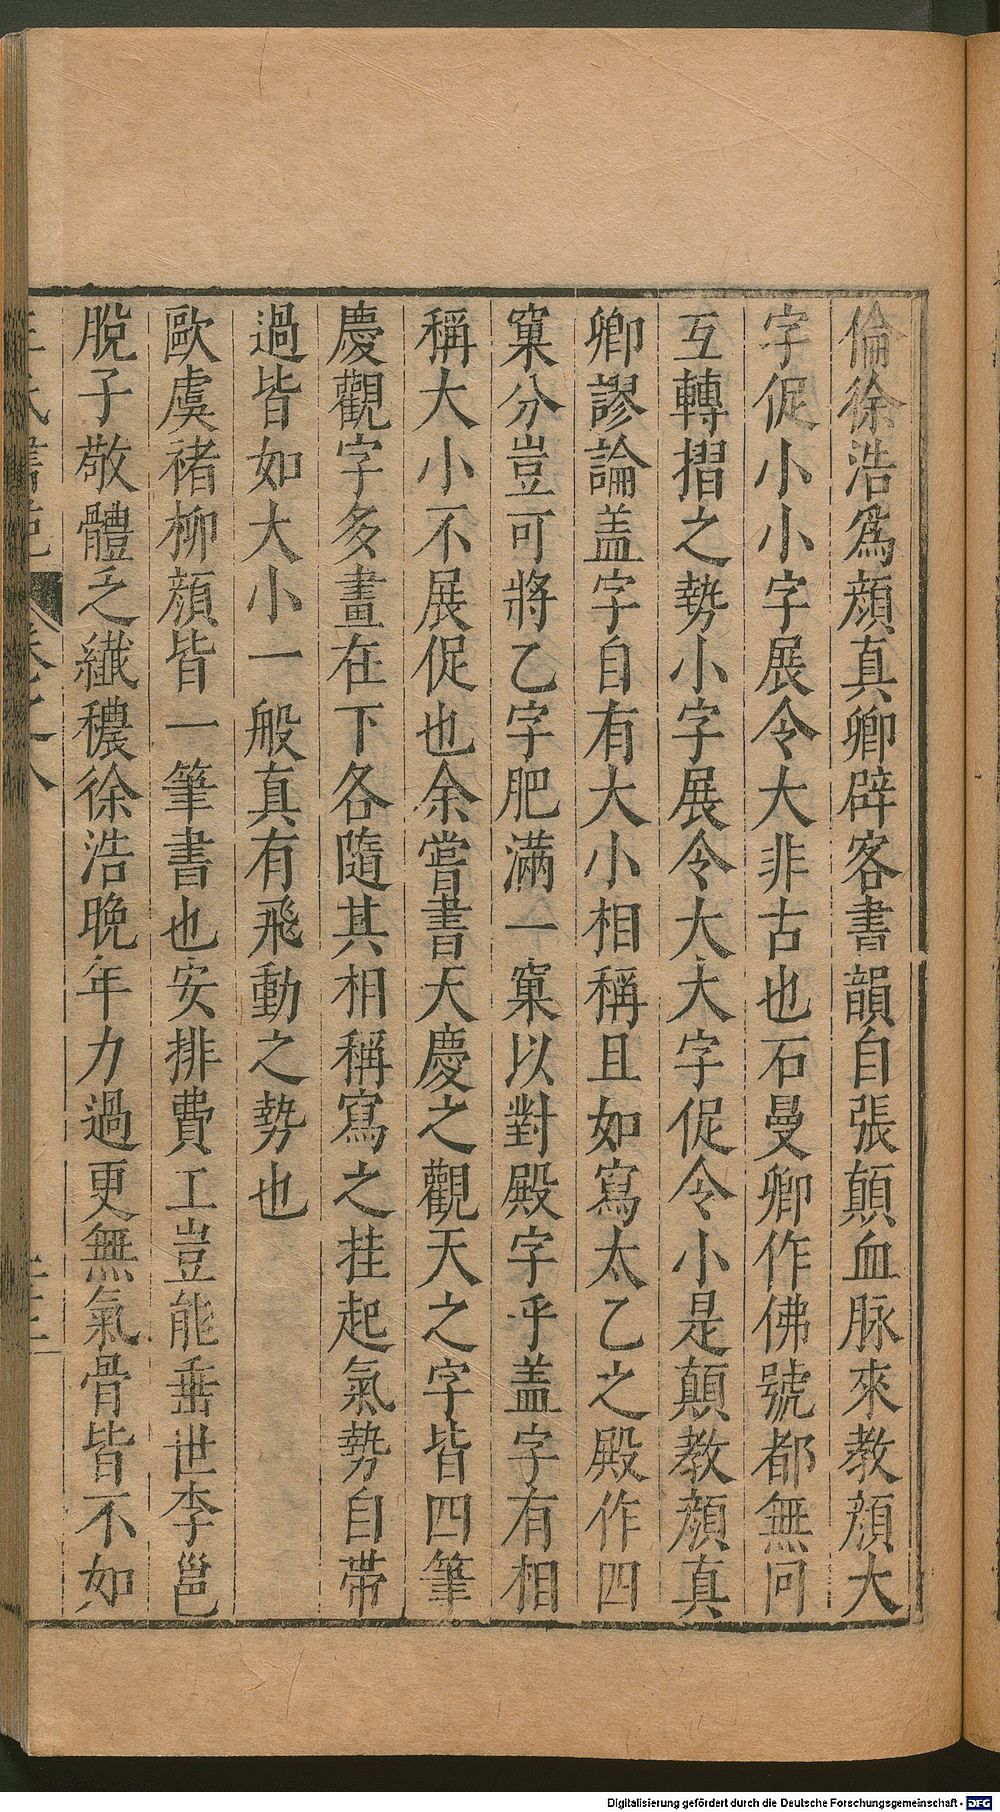 倫徐浩爲顔真卿辟客書韻自張顛血脉來教顔大
字促小小字展令大非古也石曼卿作佛號都無回
互轉摺之勢小字展令大大字促令小是顛教顔真
卿謬論盖字自有大小相稱且如寫太乙之殿作四
窠分豈可將乙字肥滿一窠以對殿字乎盖字有相
稱大小不展促也余嘗書天慶之觀天之字皆四筆
慶觀字多畫在下各隨其相稱寫之挂起氣勢自帶
過皆如大小一般真有飛動之勢也
歐虞褚柳顔皆一筆書也安排費工豈能垂世李邕
脫子敬體乏纎穠徐浩晩年力過更無氣骨皆不如
Digitalisierung gefördert durch die Deutsche Forschungsgemeinschaft - DFG